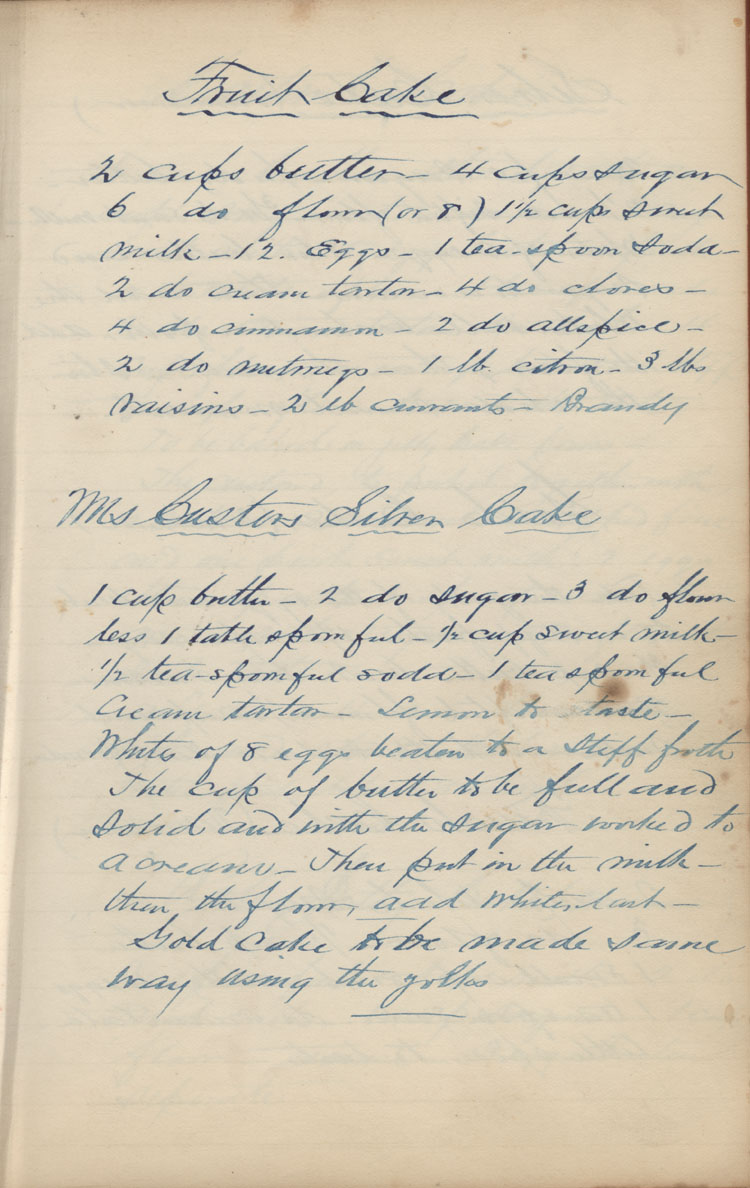 Fruit Cake
2 cups butter – 4 cups sugar
6 do flour (or 8) 1½ cups sweet
milk – 12. Eggs – 1 tea-spoon Soda –
2 do cream tartar – 4 do cloves –
4 do cinnamon – 2 do allspice –
2 do nutmegs – 1 lb. citron – 3 lbs
raisins – 2 lb currants – Brandy
Ms Custers Silver Cake
1 cup butter – 2 do sugar – 3 do flour
less 1 table spoonful – ½ cup sweet milk –
½ tea-spoonful soda – 1 teaspoonful
Cream tartar – Lemon to taste –
Whites of 8 eggs beaten to a stiff froth
The cup of butter to be full and
solid and with the sugar worked to
a cream – Then put in the milk –
then the flour, add whites last –
Gold Cake to be made same
way using the yolks